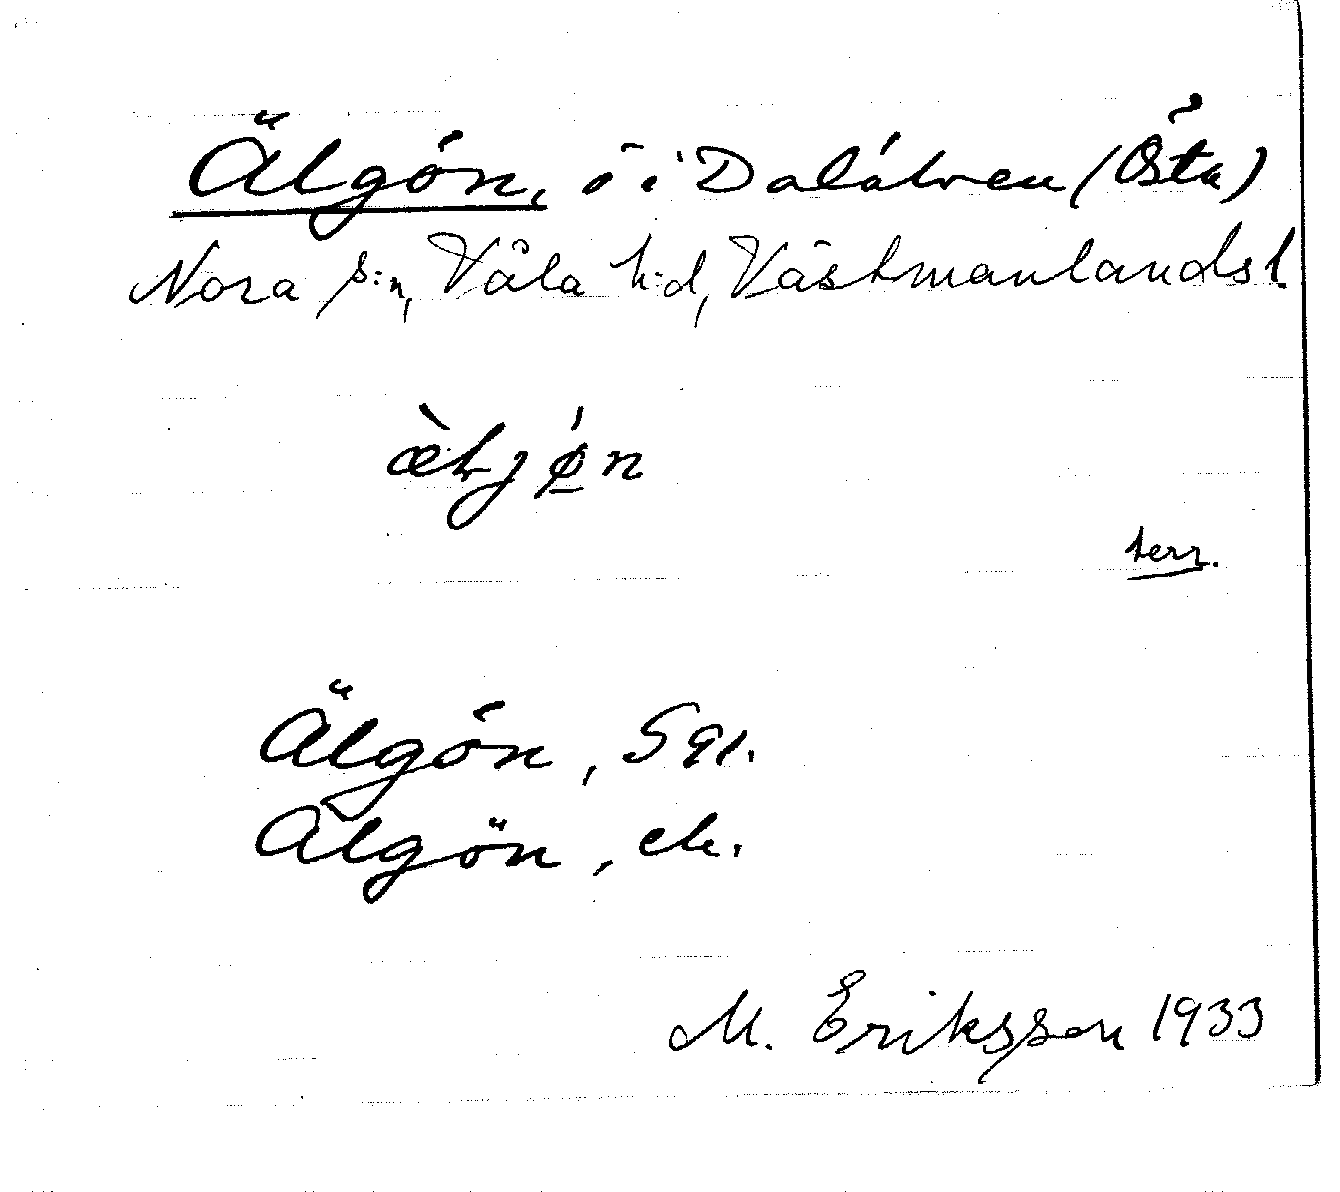 Älgön, ö i Dalälven (Östa)
Nora s:n, Våla h:d, Västmanlands l.
æ̀ƚjǿ̲n
terr.
Älgön, Sql.
Älgön, ek.
M. Eriksson 1933